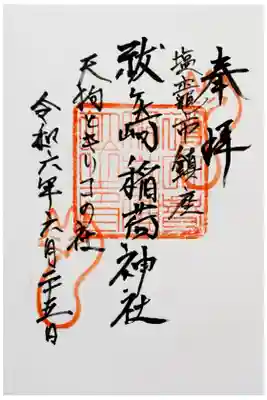 奉拝
塩竈市鎮座
鼔ヶ﨑稲荷神社
天狗ときツ子の社
令和六年六月二十五日